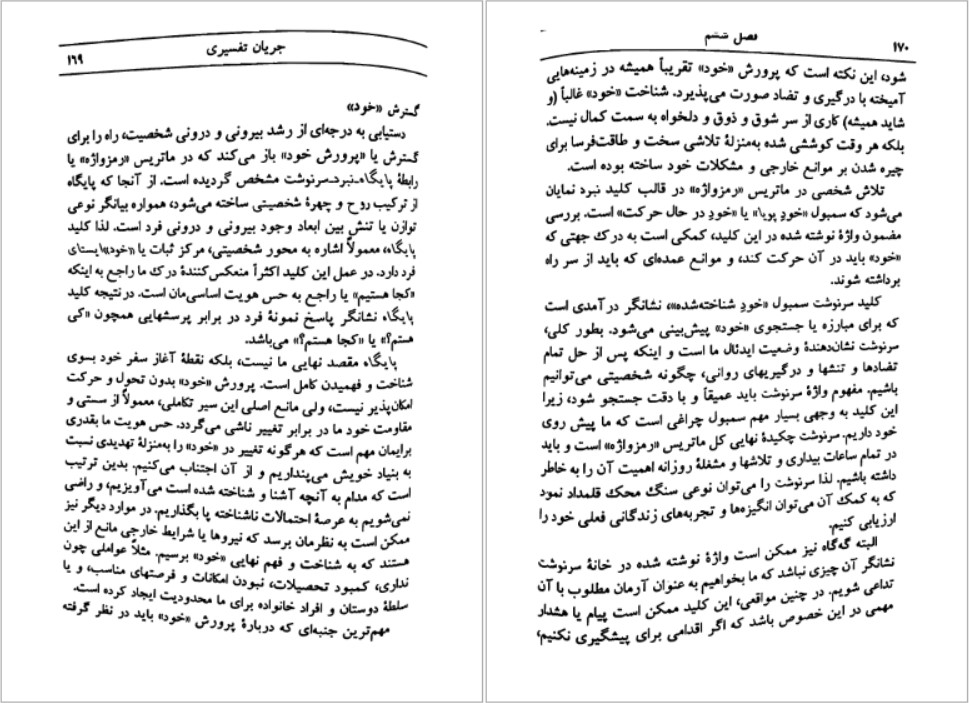 جریان تفسیری
۱۶۹
گسترش «خود»
دستیابی به درجه‌ای از رشد بیرونی و درونی شخصیت، راه را برای
گسترش یا «پرورش خود» باز می‌کند که در ماتریس «رمزواژه» یا
رابطهٔ پایگاه‌ـ‌نبردـ‌سرنوشت مشخص گردیده است. از آنجا که پایگاه
از ترکیب روح و چهرهٔ شخصیتی ساخته می‌شود، همواره بیانگر نوعی
توازن یا تنش بین ابعاد وجود بیرونی و درونی فرد است. لذا کلید
پایگاه، معمولاً اشاره به محور شخصیتی، مرکز ثبات یا «خود» ایستای
فرد دارد. در عمل این کلید اکثراً منعکس‌کنندهٔ درک ما راجع به اینکه
«کجا هستیم» یا راجع به حس هویت اساسی‌مان است. درنتیجه کلید
پایگاه نشانگر پاسخ نمونهٔ فرد در برابر پرسشهایی همچون «کی
هستم؟» یا «کجا هستم؟» می‌باشد.
پایگاه مقصد نهایی ما نیست، بلکه نقطهٔ آغاز سفر خود بسوی
شناخت و فهمیدن کامل است. پرورش «خود» بدون تحول و حرکت
امکان‌پذیر نیست، ولی مانع اصلی این سیر تکاملی، معمولاً از سستی و
مقاومت خود ما در برابر تغییر ناشی می‌گردد. حس هویت ما بقدری
برایمان مهم است که هرگونه تغییر در «خود» را به‌منزلهٔ تهدیدی نسبت
به بنیاد خویش می‌پنداریم و از آن اجتناب می‌کنیم. بدین ترتیب
است که مدام به آنچه آشنا و شناخته شده است می‌آویزیم، و راضی
نمی‌شویم به عرصهٔ احتمالات ناشناخته پا بگذاریم. در موارد دیگر نیز
ممکن است به نظرمان برسد که نیروها یا شرایط خارجی مانع از این
هستند که به شناخت و فهم نهایی «خود» برسیم. مثلاً عواملی چون
نداری، کمبود تحصیلات، نبودن امکانات و فرصتهای مناسب، و یا
سلطهٔ دوستان و افراد خانواده برای ما محدودیت ایجاد کرده است.
مهم‌ترین جنبه‌ای که دربارهٔ پرورش «خود» باید در نظر گرفته
فصل ششم
۱۷۰
شود، این نکته است که پرورش «خود» تقریباً همیشه در زمینه‌هایی
آمیخته با درگیری و تضاد صورت می‌پذیرد. شناخت «خود» غالباً (و
شاید همیشه) کاری از سر شوق و ذوق و دلخواه به سمت کمال نیست.
بلکه هر وقت کوششی شده به‌منزلهٔ تلاشی سخت و طاقت‌فرسا برای
چیره شدن بر موانع خارجی و مشکلات خود ساخته بوده است.
تلاش شخصی در ماتریس «رمزواژه» در قالب کلید نبرد نمایان
می‌شود که سمبول «خودِ پویا» یا «خودِ در حال حرکت» است. بررسی
مضمون واژهٔ نوشته شده در این کلید، کمکی است به درک جهتی که
«خود» باید در آن حرکت کند، و موانع عمده‌ای که باید از سر راه
برداشته شوند.
کلید سرنوشت سمبول «خودِ شناخته‌شده»، نشانگر درآمدی است
که برای مبارزه یا جستجوی «خود» پیش‌بینی می‌شود. بطور کلی،
سرنوشت نشان‌دهندهٔ وضعیت ایدئال ما است و اینکه پس از حل تمام
تضادها و تنشها و درگیریهای روانی، چگونه شخصیتی می‌توانیم
باشیم. مفهوم واژهٔ سرنوشت باید عمیقاً و با دقت جستجو شود، زیرا
این کلید به وجهی بسیار مهم سمبول چراغی است که ما پیش روی
خود داریم. سرنوشت چکیدهٔ نهایی کل ماتریس «رمزواژه» است و باید
در تمام ساعات بیداری و تلاشها و مشغلهٔ روزانه اهمیت آن را به خاطر
داشته باشیم. لذا سرنوشت را می‌توان نوعی سنگ محک قلمداد نمود
که به کمک آن می‌توان انگیزه‌ها و تجربه‌های زندگانی فعلی خود را
ارزیابی کنیم.
البته گه‌گاه نیز ممکن است واژهٔ نوشته شده در خانهٔ سرنوشت
نشانگر آن چیزی نباشد که ما بخواهیم به عنوان آرمان مطلوب با آن
تداعی شویم. در چنین مواقعی، این کلید ممکن است پیام یا هشدار
مهمی در این خصوص باشد که اگر اقدامی برای پیشگیری نکنیم،